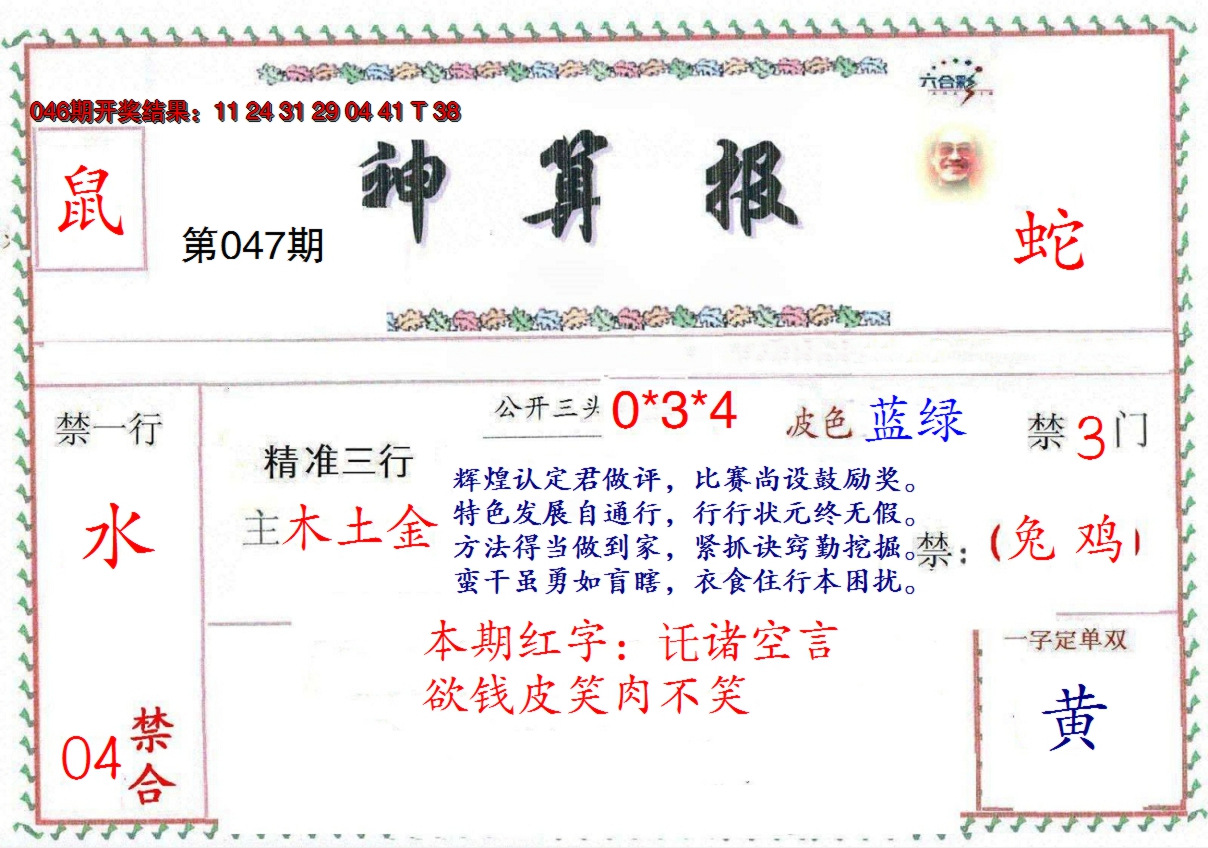 六合彩
046期开奖结果：11 24 31 29 04 41 T 38
神算报
鼠
第047期
蛇
公开三头 0*3*4
波色 蓝绿
禁一行
禁3门
精准三行
主木土金
水
辉煌认定君做评，比赛尚设鼓励奖。
特色发展自通行，行行状元终无假。
方法得当做到家，紧抓诀窍勤挖掘。
蛮干虽勇如盲瞎，衣食住行本困扰。
禁：(兔 鸡)
本期红字：讬诸空言
欲钱皮笑肉不笑
一字定单双
黄
04禁合